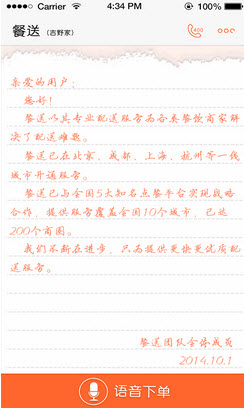 Carrier 4:34 PM 100%
餐送 (吉野家) 400
亲爱的用户:
您好!
餐送以其专业配送服务而各类餐饮商家解
决了配送难题。
餐送已在北京、成都、上海、杭州等一线
城市开通服务。
餐送已与全国5大知名点餐平台实现战略
合作,提供服务覆盖全国10个城市,已达
200个商圈。
我们不断在进步,只为提供更快更优质配
送服务。
餐送团队全体成员
2014.10.1
语音下单